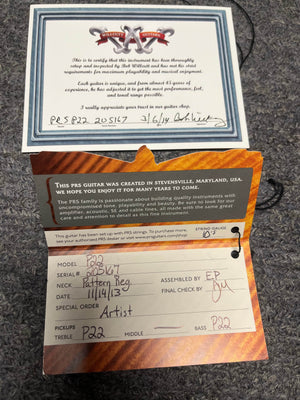 WILLCUTT GUITARS
This is to certify that this instrument has been thoroughly
setup and inspected by Bob Willcutt and has met his strict
requirements for maximum playability and musical enjoyment.
Each guitar is unique, and from almost 45 years of
experience, he has adjusted it to get the most performance, feel,
and tonal range possible.
I really appreciate your trust in our guitar shop.
PRS P22 205167 2/6/14
THIS PRS GUITAR WAS CREATED IN STEVENSVILLE, MARYLAND, USA.
WE HOPE YOU ENJOY IT FOR MANY YEARS TO COME.
The PRS family is passionate about building quality instruments with
uncompromised tone, playability and beauty. Be sure to look for our
amplifier, acoustic, SE and core lines, all made with the same great
care and attention to detail as this fine instrument.
This guitar has been set up with PRS strings. To purchase more,
see your authorized PRS dealer or visit www.prsguitars.com/shop.
STRING GAUGE
MODEL P22
SERIAL# 205167
NECK Pattern Reg.
DATE 11/14/13
ASSEMBLED BY EP
FINAL CHECK BY
SPECIAL ORDER
Artist
PICKUPS
TREBLE P22 MIDDLE BASS P22